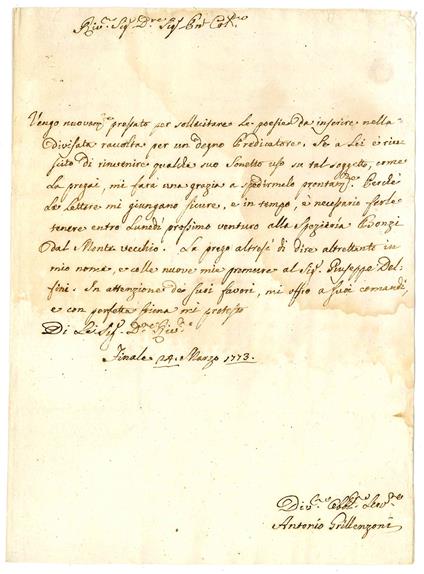 Riv.e Sig.r D.re Sig.r
Vengo nuovam.e pressato per sollicitare le poesie da inserire nella
divisata racolta per un degno Predicatore. Se a Lei è rius-
scito di rinvenire qualche suo Sonetto uso su tal soggetto, come
La pregai, mi farà una grazia a spedirmelo prontam.e Perchè
le Lettere mi giungano sicure, e in tempo, è necessario farle
tenere entro Lundì prossimo venturo alla Spezieria Bonzi
dal Monte vecchio. La prego altresì di dire altrettanto in
mio nome, e colle nuove mie premure al Sig.r Giuseppe Dol-
fini. In attenzione de suoi favori, mi offro a suoi comandi,
e con perfetta stima mi protesto
Di Lei Sig.r D.re Riv.e
Finale 24. Marzo 1773.
Div.mo Obb.mo Serv.re
Antonio Grillenzoni